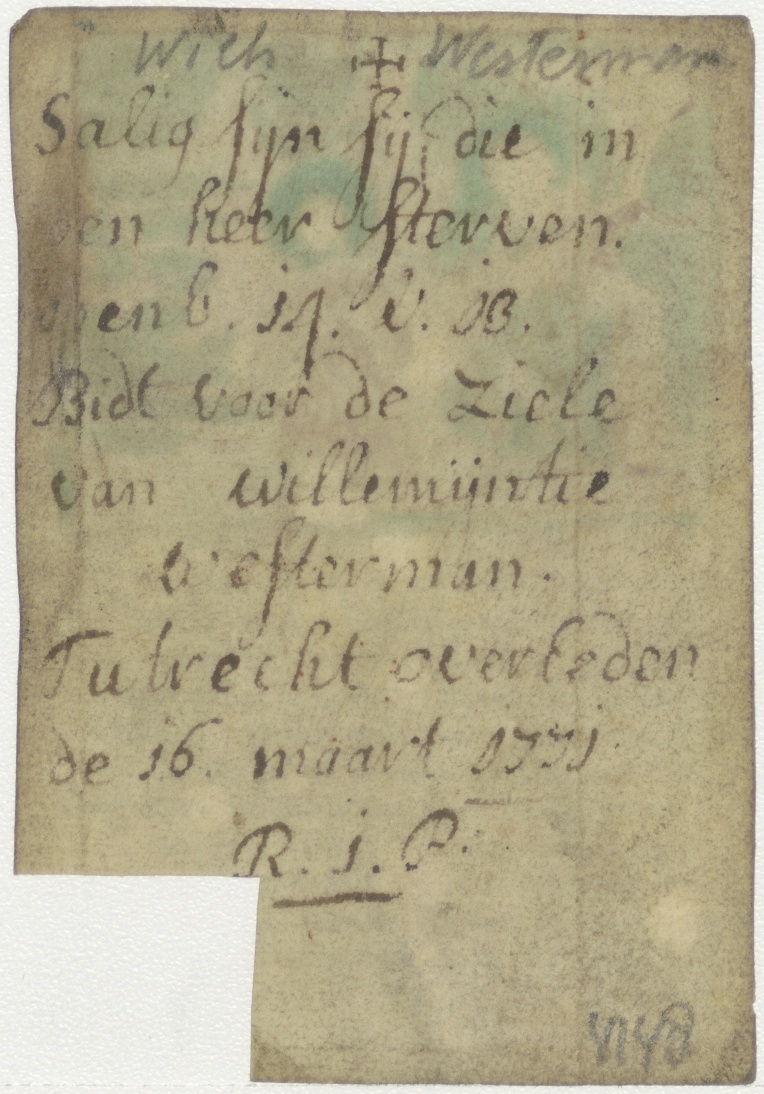 Wich ✠ Westerman
Salig sijn sij die in
den heer sterven.
openb. 14. v. 13.
Bidt voor de ziele
van willemijntie
westerman.
Tutrecht overleden
de 16. maart 1771.
R. i. P.